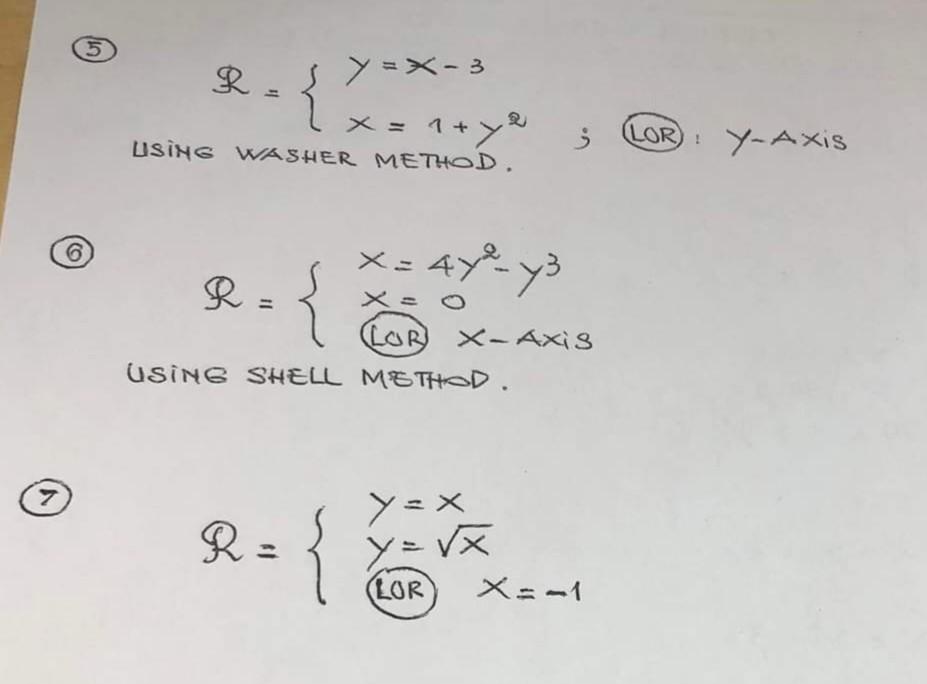 ⑤
R = { y = x - 3
x = 1 + y² ; LOR : Y-AXIS
USING WASHER METHOD.
⑥
R = { x = 4y² - y³
x = 0
LOR X-AXIS
USING SHELL METHOD.
⑦
R = { y = x
y = √x
LOR x = -1